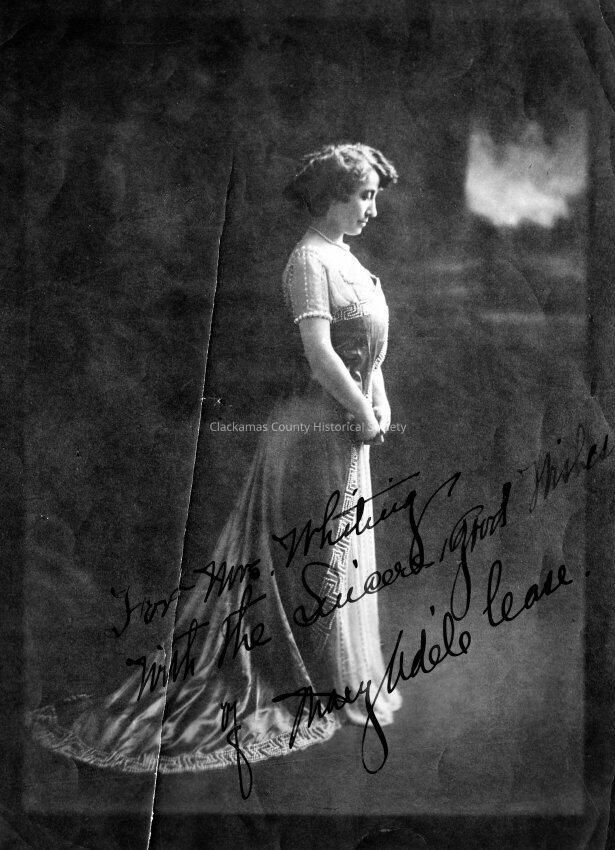 Clackamas County Historical Society
For Mrs. Whiting,
With the Sincere good Wishes
of Mary Adéle Case.